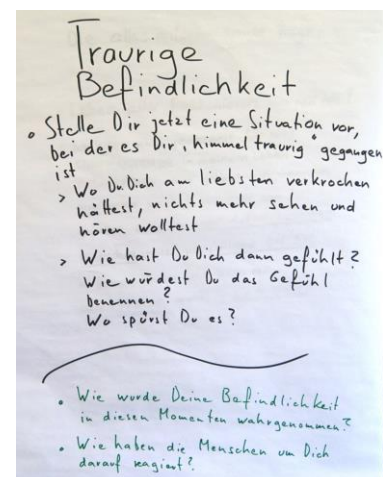 Traurige
Befindlichkeit
• Stelle Dir jetzt eine Situation vor,
bei der es Dir „himmel traurig“ gegangen
ist
> Wo Du Dich am liebsten verkrochen
hättest, nichts mehr sehen und
hören wolltest
> Wie hast Du Dich dann gefühlt?
Wie würdest Du das Gefühl
benennen?
Wo spürst Du es?
• Wie wurde Deine Befindlichkeit
in diesen Momenten wahrgenommen?
• Wie haben die Menschen um Dich
darauf reagiert?